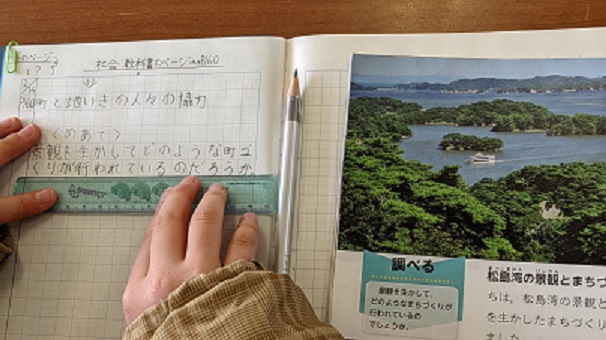 のページ
1 7 5
社会 教科書のページ P160
町と地いきの人々の協力
くめあて>
景観を生かしてどのような町づ
くりが行われているのだろうか。
調べる
景観を生かして、
どのようなまちづくりが
行われているの
でしょうか。
松島湾の景観とまちづ
ちは、松島湾の景観
を生かしたまちづくり
ました